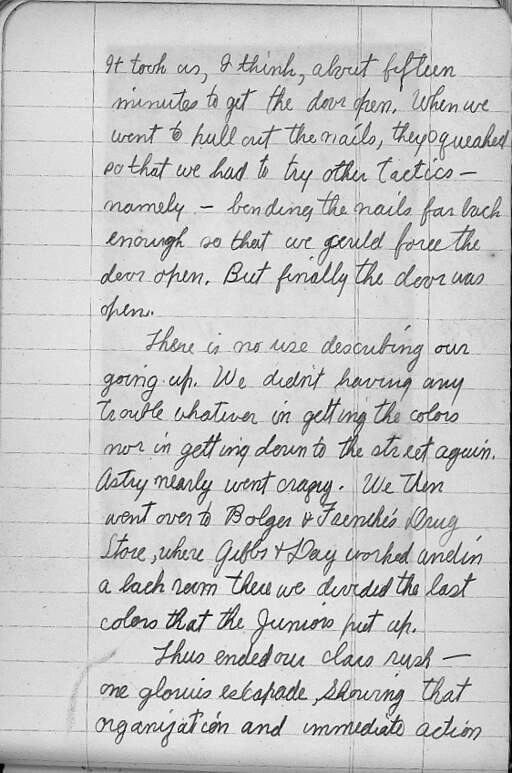 It took us, I think, about fifteen
minutes to get the door open. When we
went to pull out the nails, they squeaked
so that we had to try other tactics —
namely — bending the nails far back
enough so that we could force the
door open. But finally the door was
open.
There is no use describing our
going up. We didn't having any
trouble whatever in getting the colors
nor in getting down to the street again.
Astry nearly went crazy. We then
went over to Bolger & French's Drug
Store, where Gibbs & Day worked and in
a back room there we divided the last
colors that the Juniors put up.
Thus ended our class rush —
one glorius eskapade, showing that
organization and immediate action